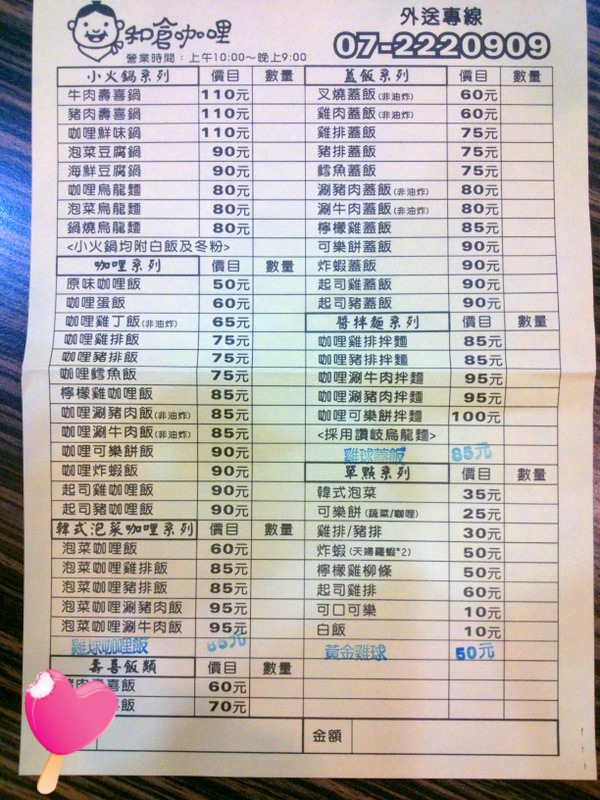 和倉咖哩
外送專線
07-2220909
營業時間：上午10:00～晚上9:00
小火鍋系列 價目 數量
牛肉壽喜鍋 110元
豬肉壽喜鍋 110元
咖哩鮮味鍋 110元
泡菜豆腐鍋 90元
海鮮豆腐鍋 90元
咖哩烏龍麵 80元
泡菜烏龍麵 80元
鍋燒烏龍麵 80元
<小火鍋均附白飯及冬粉>
咖哩系列 價目 數量
原味咖哩飯 50元
咖哩蛋飯 60元
咖哩雞丁飯(非油炸) 65元
咖哩雞排飯 75元
咖哩豬排飯 75元
咖哩鱈魚飯 75元
檸檬雞咖哩飯 85元
咖哩涮豬肉飯(非油炸) 85元
咖哩涮牛肉飯(非油炸) 85元
咖哩可樂餅飯 90元
咖哩炸蝦飯 90元
起司雞咖哩飯 90元
起司豬咖哩飯 90元
韓式泡菜咖哩系列 價目 數量
泡菜咖哩飯 60元
泡菜咖哩雞排飯 85元
泡菜咖哩豬排飯 85元
泡菜咖哩涮豬肉飯 95元
泡菜咖哩涮牛肉飯 95元
雞球咖哩飯 85元
壽喜飯類 價目 數量
肉壽喜飯 60元
喜飯 70元
蓋飯系列 價目 數量
叉燒蓋飯(非油炸) 60元
雞肉蓋飯(非油炸) 60元
雞排蓋飯 75元
豬排蓋飯 75元
鱈魚蓋飯 75元
涮豬肉蓋飯(非油炸) 80元
涮牛肉蓋飯(非油炸) 80元
檸檬雞蓋飯 85元
可樂餅蓋飯 90元
炸蝦蓋飯 90元
起司雞蓋飯 90元
起司豬蓋飯 90元
醬拌麵系列 價目 數量
咖哩雞排拌麵 85元
咖哩豬排拌麵 85元
咖哩涮牛肉拌麵 95元
咖哩涮豬肉拌麵 95元
咖哩可樂餅拌麵 100元
<採用讚岐烏龍麵>
雞球蓋飯 85元
單點系列 價目 數量
韓式泡菜 35元
可樂餅(蔬菜/咖哩) 25元
雞排/豬排 30元
炸蝦(天婦羅蝦*2) 50元
檸檬雞柳條 50元
起司雞排 60元
可口可樂 10元
白飯 10元
黃金雞球 50元
金額